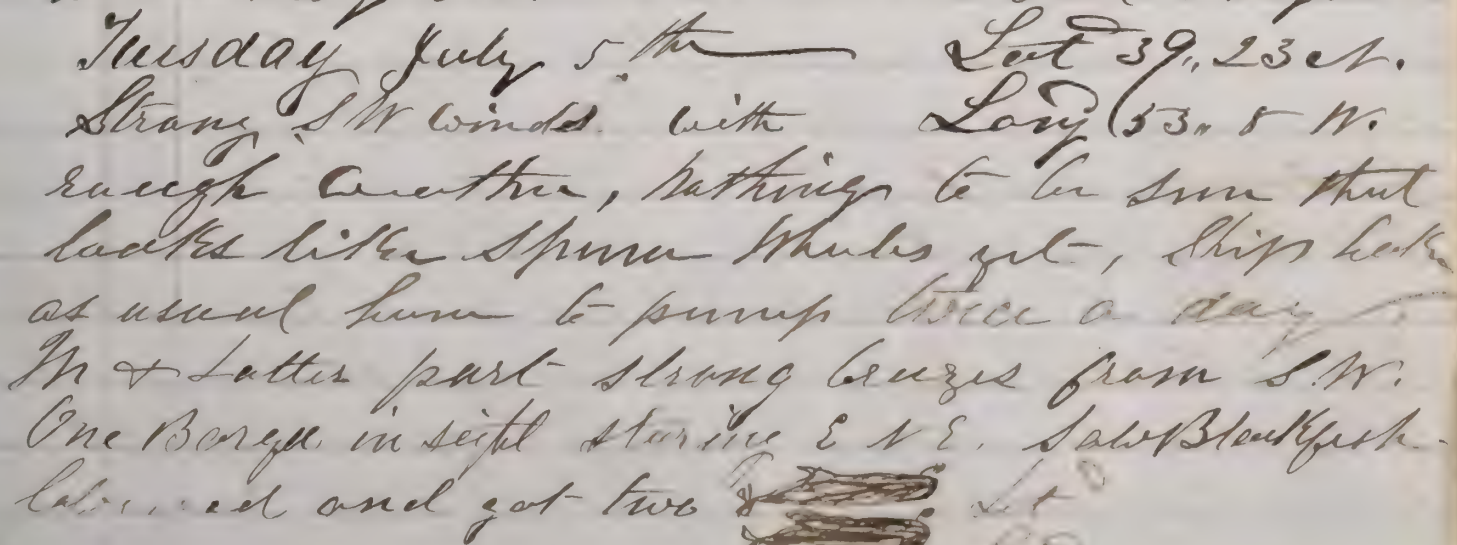 Tuesday July 5th Lat 39,, 23 N.
Strong S W winds with Long 53,, 8 W.
rough weather, nothing to be seen that
looks like Sperm Whales yet, Ship leaks
as usual have to pump twice a day
M & Latter part strong breezes from S. W.
One Barque in sight stering E N E. Saw Blackfish
lowered and got two